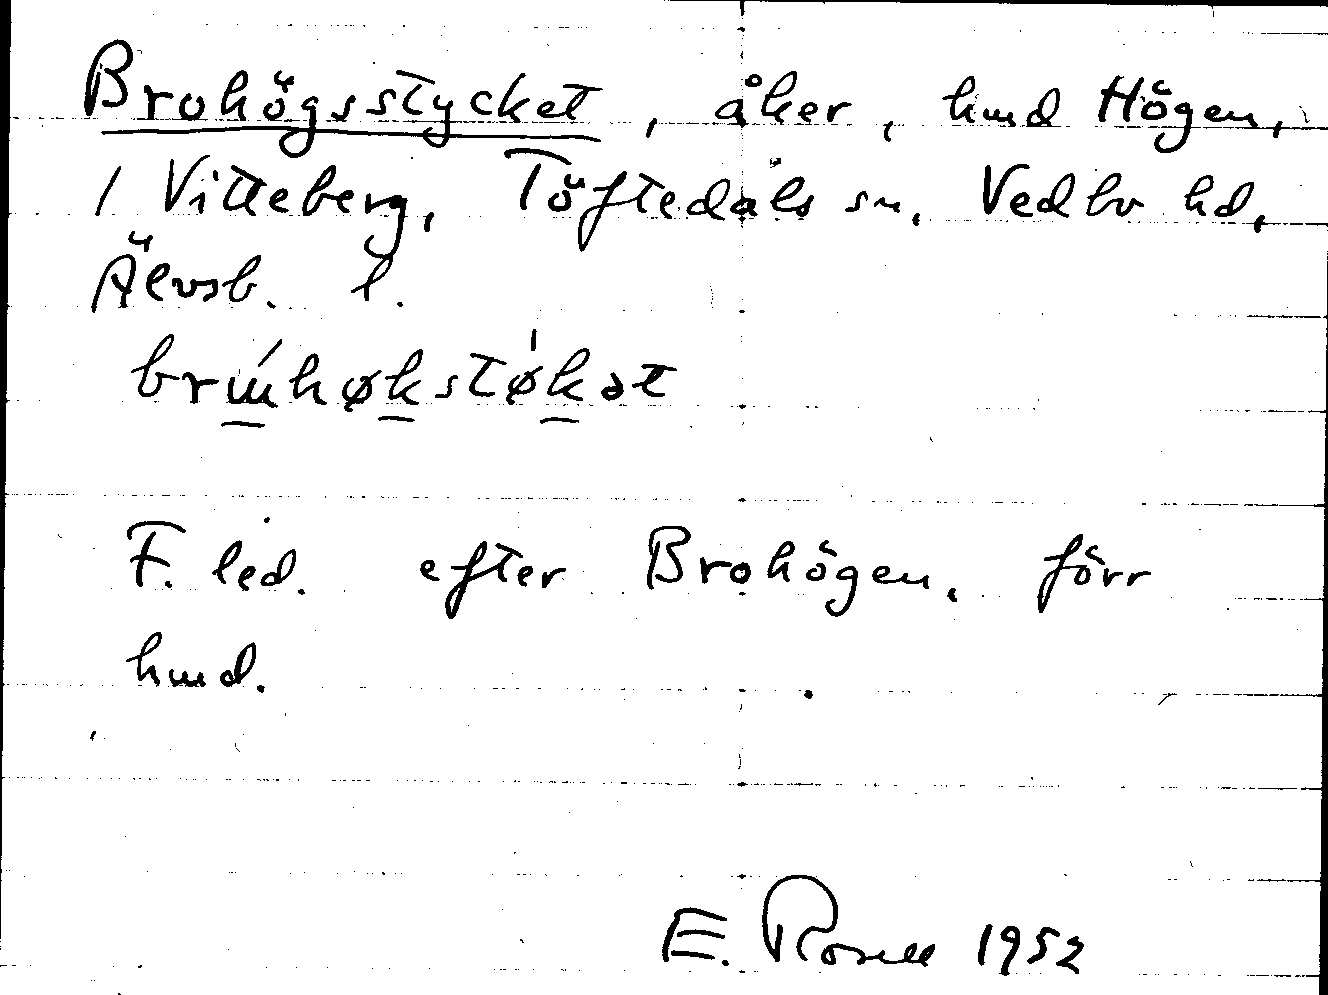 Brohögsstycket, åker, hmd Högen,
1 Vitteberg, Töftedals sn, Vedbo hd,
Älvsb. l.
F. led. efter Brohögen, förr
hmd.
E. Rosell 1952